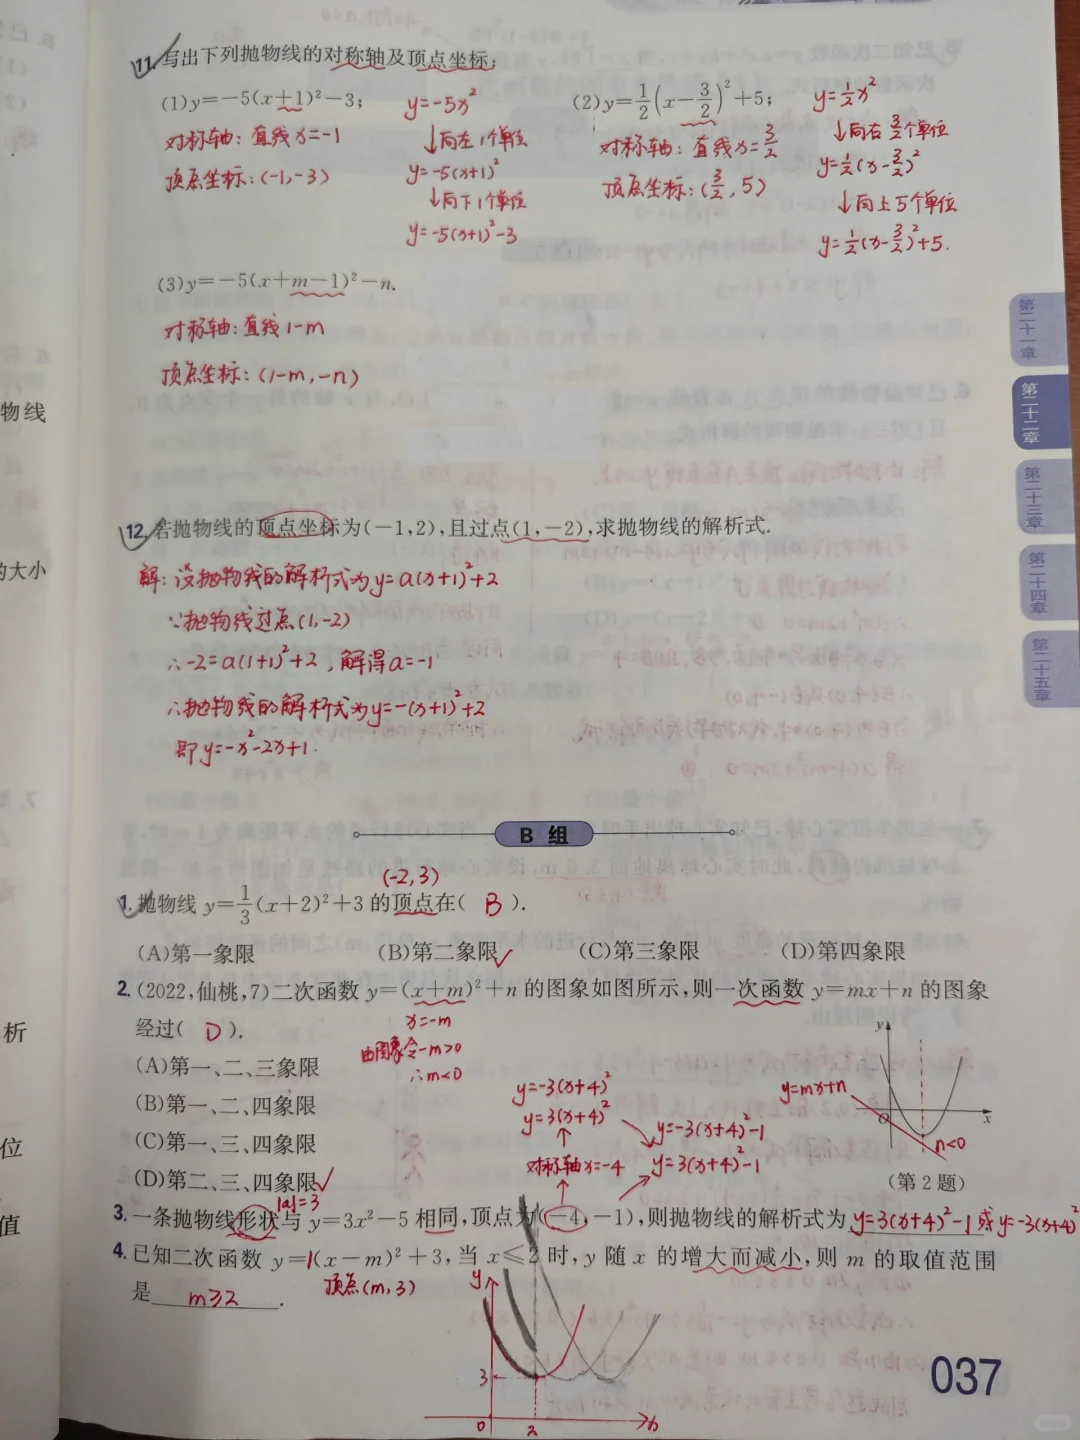 11. 写出下列抛物线的对称轴及顶点坐标:
(1)y=-5(x+1)²-3;
y=-5x²
(2)y=1/2(x-3/2)²+5;
y=1/2x²
对称轴:直线x=-1
↓向左1个单位
对称轴:直线x=3/2
↓向右3/2个单位
顶点坐标:(-1,-3)
y=-5(x+1)²
顶点坐标:(3/2,5)
y=1/2(x-3/2)²
↓向下1个单位
↓向上5个单位
y=-5(x+1)²-3
y=1/2(x-3/2)²+5.
(3)y=-5(x+m-1)²-n.
对称轴:直线1-m
顶点坐标:(1-m,-n)
第二十一章
第二十二章
第二十三章
第二十四章
第二十五章
物线
的大小
析
位
值
12. 若抛物线的顶点坐标为(-1,2),且过点(1,-2),求抛物线的解析式.
解:设抛物线的解析式为y=a(x+1)²+2
∵抛物线过点(1,-2)
∴-2=a(1+1)²+2,解得a=-1
∴抛物线的解析式为y=-(x+1)²+2
即y=-x²-2x+1.
B 组
(-2,3)
1. 抛物线 y=1/3(x+2)²+3 的顶点在( B ).
(A)第一象限 (B)第二象限✓ (C)第三象限 (D)第四象限
2. (2022,仙桃,7)二次函数 y=(x+m)²+n 的图象如图所示,则一次函数 y=mx+n 的图象
经过( D ).
x=-m
由图象令-m>0
∴m<0
(A)第一、二、三象限
(B)第一、二、四象限
(C)第一、三、四象限
(D)第二、三、四象限✓
y=-3(x+4)²
y=3(x+4)²
y=-3(x+4)²-1
对称轴x=-4
y=3(x+4)²-1
y
y=mx+n
O
x
n<0
(第 2 题)
|a|=3
3. 一条抛物线形状与 y=3x²-5 相同,顶点为(-4,-1),则抛物线的解析式为 y=3(x+4)²-1 或 y=-3(x+4)²
4. 已知二次函数 y=1(x-m)²+3,当 x≤2 时,y 随 x 的增大而减小,则 m 的取值范围
是 m≥2 .
顶点(m,3)
y
3
0
2
x
037